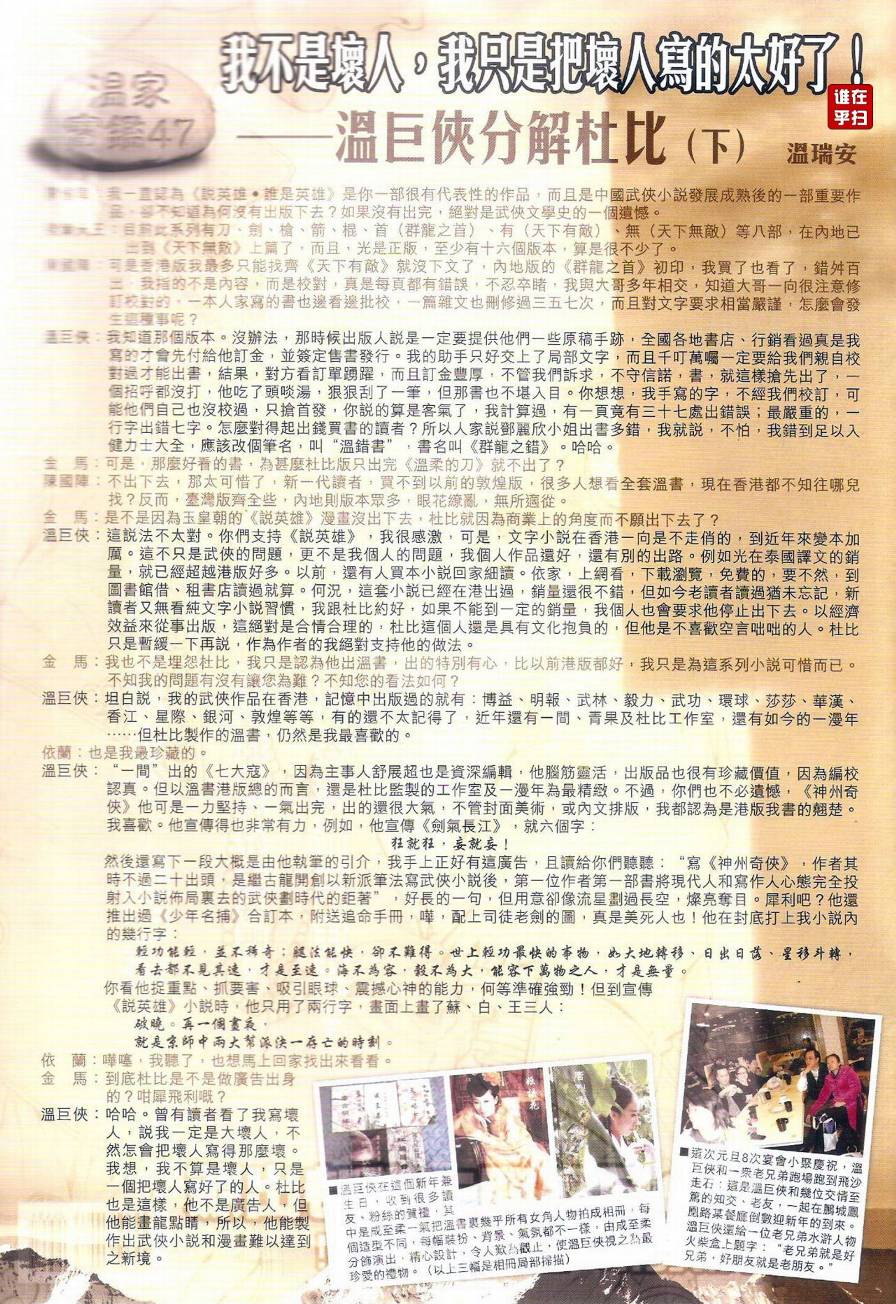 我不是壞人，我只是把壞人寫的太好了！
誰在
乎扫
溫家
寶鑑47
——溫巨俠分解杜比（下） 溫瑞安
我一直認為《說英雄•誰是英雄》是你一部很有代表性的作品，而且是中國武俠小說發展成熟後的一部重要作
品，卻不知道為何沒有出版下去？如果沒有出完，絕對是武俠文學史的一個遺憾。
目前此系列有刀、劍、槍、箭、棍、首（群龍之首）、有（天下有敵）、無（天下無敵）等八部，在內地已
出到《天下無敵》上篇了，而且，光是正版，至少有十六個版本，算是很不少了。
陳國陣：可是香港版我最多只能找齊《天下有敵》就沒下文了，內地版的《群龍之首》初印，我買了也看了，錯舛百
出，我指的不是內容，而是校對，真是每頁都有錯誤，不忍卒睹，我與大哥多年相交，知道大哥一向很注意修
訂校對的，一本人家寫的書也邊看邊批校，一篇雜文也刪修過三五七次，而且對文字要求相當嚴謹，怎麼會發
生這種事呢？
溫巨俠：我知道那個版本。沒辦法，那時候出版人說是一定要提供他們一些原稿手跡，全國各地書店、行銷看過真是我
寫的才會先付給他訂金，並簽定售書發行。我的助手只好交上了局部文字，而且千叮萬囑一定要給我們親自校
對過才能出書，結果，對方看訂單踴躍，而且訂金豐厚，不管我們訴求，不守信諾，書，就這樣搶先出了，一
個招呼都沒打，他吃了頭啖湯，狠狠刮了一筆，但那書也不堪入目。你想想，我手寫的字，不經我們校訂，可
能他們自己也沒校過，只搶首發，你說的算是客氣了，我計算過，有一頁竟有三十七處出錯誤；最嚴重的，一
行字出錯七字。怎麼對得起出錢買書的讀者？所以人家說鄧麗欣小姐出書多錯，我就說，不怕，我錯到足以入
健力士大全，應該改個筆名，叫“溫錯書”，書名叫《群龍之錯》。哈哈。
金　馬：可是，那麼好看的書，為甚麼杜比版只出完《溫柔的刀》就不出了？
陳國陣：不出下去，那太可惜了，新一代讀者，買不到以前的敦煌版，很多人想看全套溫書，現在香港都不知往哪兒
找？反而，臺灣版齊全些，內地則版本眾多，眼花繚亂，無所適從。
金　馬：是不是因為玉皇朝的《說英雄》漫畫沒出下去，杜比就因為商業上的角度而不願出下去了？
溫巨俠：這說法不太對。你們支持《說英雄》，我很感激，可是，文字小說在香港一向是不走俏的，到近年來變本加
厲。這不只是武俠的問題，更不是我個人的問題，我個人作品還好，還有別的出路。例如光在泰國譯文的銷
量，就已經超越港版好多。以前，還有人買本小說回家細讀。依家，上網看，下載瀏覽，免費的，要不然，到
圖書館借、租書店讀過就算。何況，這套小說已經在港出過，銷量還很不錯，但如今老讀者讀過猶未忘記，新
讀者又無看純文字小說習慣，我跟杜比約好，如果不能到一定的銷量，我個人也會要求他停止出下去。以經濟
效益來從事出版，這絕對是合情合理的，杜比這個人還是具有文化抱負的，但他是不喜歡空言咄咄的人。杜比
只是暫緩一下再說，作為作者的我絕對支持他的做法。
金　馬：我也不是埋怨杜比，我只是認為他出溫書，出的特別有心，比以前港版都好，我只是為這系列小說可惜而已。
不知我的問題有沒有讓您為難？不知您的看法如何？
溫巨俠：坦白說，我的武俠作品在香港，記憶中出版過的就有：博益、明報、武林、毅力、武功、環球、莎莎、華漢、
香江、星際、銀河、敦煌等等，有的還不太記得了，近年還有一間、青果及杜比工作室，還有如今的一漫年
……但杜比製作的溫書，仍然是我最喜歡的。
依蘭：也是我最珍藏的。
溫巨俠：“一間”出的《七大寇》，因為主事人舒展超也是資深編輯，他腦筋靈活，出版品也很有珍藏價值，因為編校
認真。但以溫書港版總的而言，還是杜比監製的工作室及一漫年為最精緻。不過，你們也不必遺憾，《神州奇
俠》他可是一力堅持、一氣出完，出的還很大氣，不管封面美術，或內文排版，我都認為是港版我書的翹楚。
我喜歡。他宣傳得也非常有力，例如，他宣傳《劍氣長江》，就六個字：
狂就狂，妄就妄！
然後還寫下一段大概是由他執筆的引介，我手上正好有這廣告，且讀給你們聽聽：“寫《神州奇俠》，作者其
時不過二十出頭，是繼古龍開創以新派筆法寫武俠小說後，第一位作者第一部書將現代人和寫作人心態完全投
射入小說佈局裏去的武俠劃時代的鉅著”，好長的一句，但用意卻像流星劃過長空，燦亮奪目。犀利吧？他還
推出過《少年名捕》合訂本，附送追命手冊，嘩，配上司徒老劍的圖，真是美死人也！他在封底打上我小說內
的幾行字：
輕功能輕，並不稀奇；腿法能快，卻不難得。世上輕功最快的事物，如大地轉移、日出日落、星移斗轉，
看去都不見其速，才是至速。海不為容，毅不為大，能容下萬物之人，才是無量。
你看他捉重點、抓要害、吸引眼球、震撼心神的能力，何等準確強勁！但到宣傳
《說英雄》小說時，他只用了兩行字，畫面上畫了蘇、白、王三人：
破曉。再一個晝夜，
就是京師中兩大幫派決一存亡的時刻。
依　蘭：嘩噻，我聽了，也想馬上回家找出來看看。
金　馬：到底杜比是不是做廣告出身
的？咁犀飛利嘅？
溫巨俠：哈哈。曾有讀者看了我寫壞
人，說我一定是大壞人，不
然怎會把壞人寫得那麼壞。
我想，我不算是壞人，只是
一個把壞人寫好了的人。杜比
也是這樣，他不是廣告人，但
他能畫龍點睛，所以，他能製
作出武俠小說和漫畫難以達到
之新境。
■溫巨俠在這個新年兼
生日，收到很多讀
友、粉絲的賀禮，其
中是成至柔一氣把溫書裏幾乎所有女角人物拍成相冊，每
個造型不同，每幅裝扮、背景、氣氛都不一樣，由成至柔
分飾演出，精心設計，令人歎為觀止，使溫巨俠視之為最
珍愛的禮物。（以上三幅是相冊局部掃描）
■這次元旦8次宴會小聚慶祝，溫
巨俠和一眾老兄弟跑場跑到飛沙
走石：這是溫巨俠和幾位交情至
篤的知交、老友，一起在鵬城鳳
凰路某餐廳倒數迎新年的到來。
溫巨俠還給一位老兄弟水滸人物
火柴盒上題字：“老兄弟就是好
兄弟，好朋友就是老朋友。”